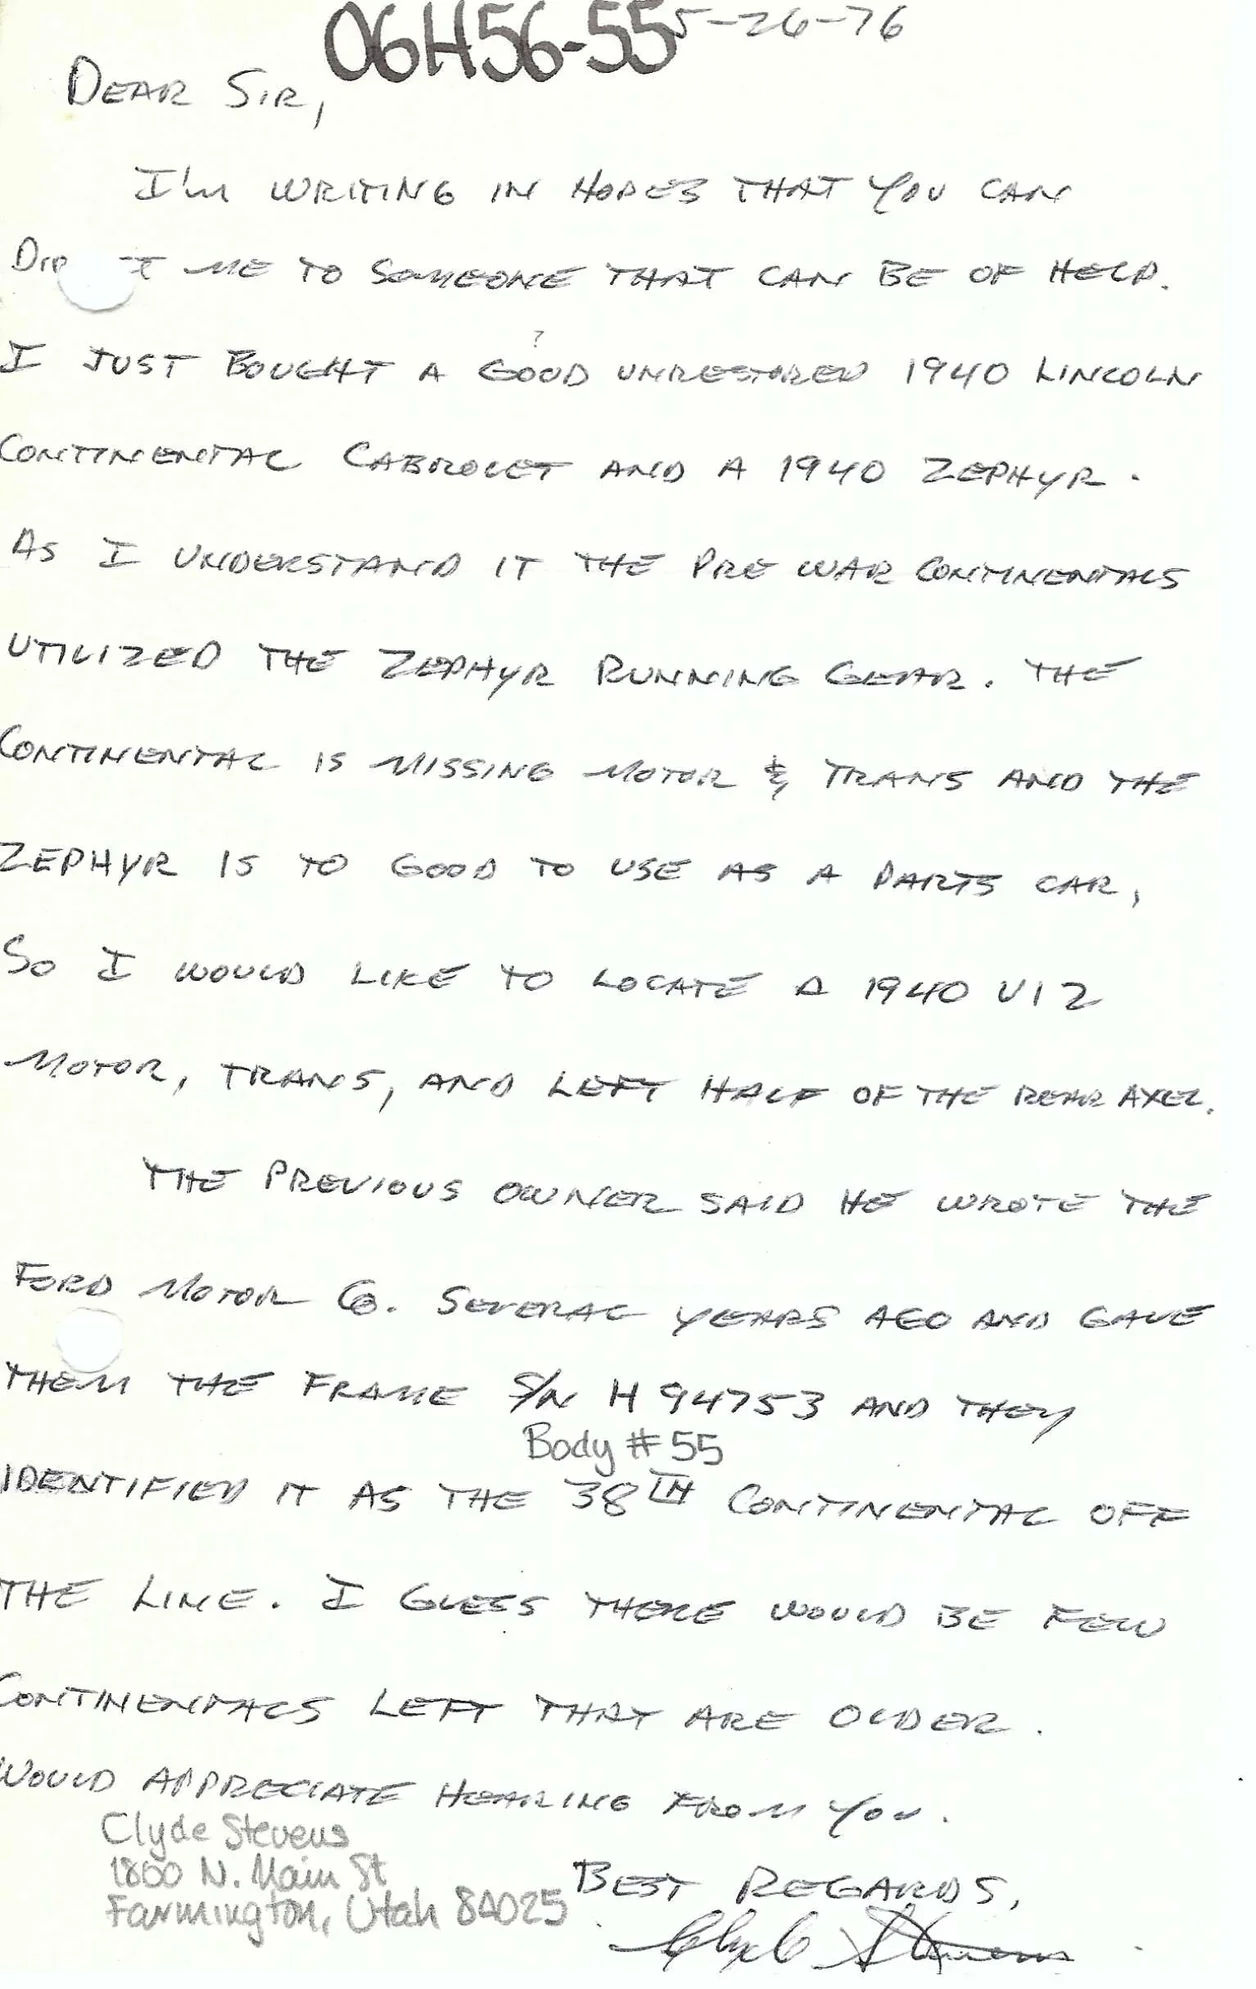 06H56-55 5-26-76
DEAR SIR,
I'M WRITING IN HOPES THAT YOU CAN
ME TO SOMEONE THAT CAN BE OF HELP.
?
I JUST BOUGHT A GOOD UNRESTORED 1940 LINCOLN
CONTINENTAL CABROLET AND A 1940 ZEPHYR.
AS I UNDERSTAND IT THE PRE WAR CONTINENTALS
UTILIZED THE ZEPHYR RUNNING GEAR. THE
CONTINENTAL IS MISSING MOTOR & TRANS AND THE
ZEPHYR IS TO GOOD TO USE AS A PARTS CAR,
SO I WOULD LIKE TO LOCATE A 1940 V12
MOTOR, TRANS, AND LEFT HALF OF THE REAR AXEL.
THE PREVIOUS OWNER SAID HE WROTE THE
FORD MOTOR CO. SEVERAL YEARS AGO AND GAVE
THEM THE FRAME S/N H94753 AND THEY
Body #55
IDENTIFIED IT AS THE 38TH CONTINENTAL OFF
THE LINE. I GUESS THERE WOULD BE FEW
CONTINENTALS LEFT THAT ARE OLDER.
WOULD APPRECIATE HEARING FROM YOU.
Clyde Stevens
1800 N. Main St
Farmington, Utah 84025
BEST REGARDS,
Clyde Stevens